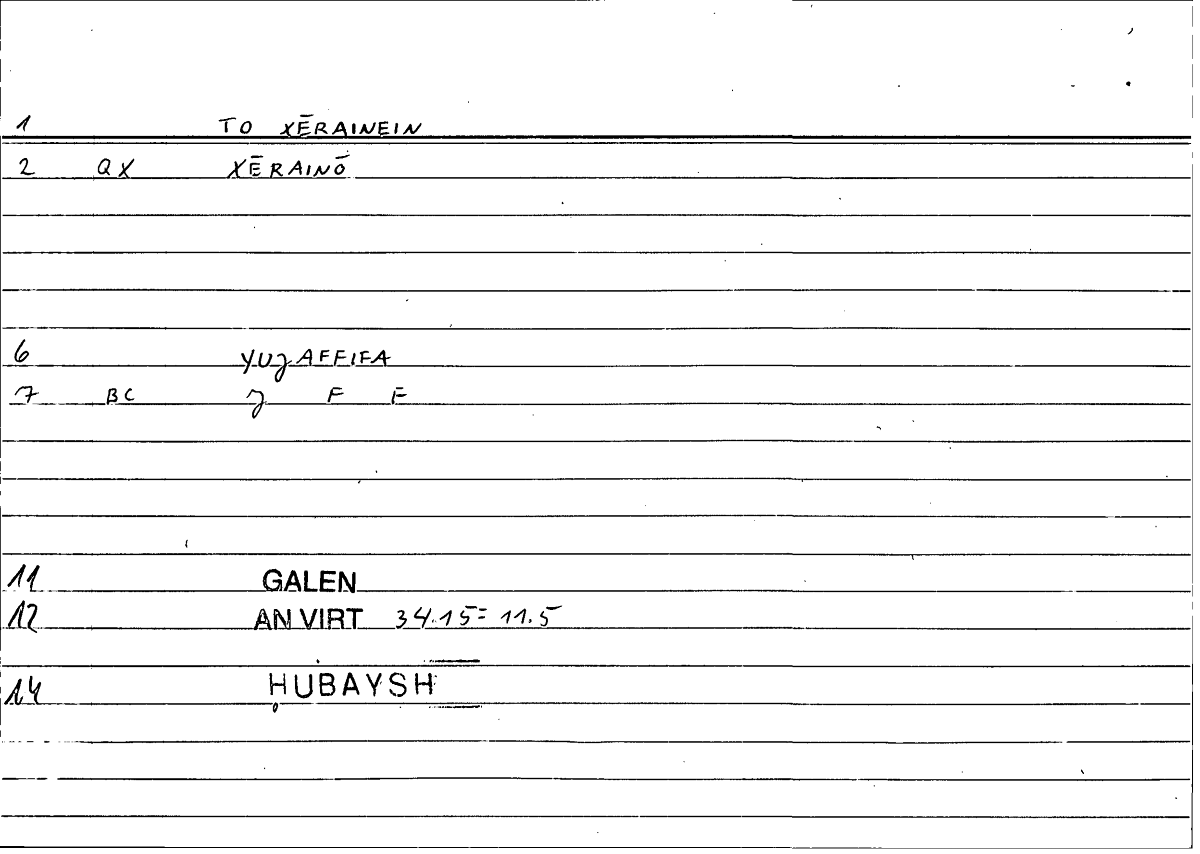 1 TO XĒRAINEIN
2 QX XĒRAINŌ
6 YUJAFFIFA
7 BC J F F
11 GALEN
12 AN VIRT 34.15 = 11.5
14 ḤUBAYSH